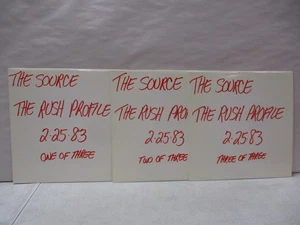 THE SOURCE
THE RUSH PROFILE
2·25·83
ONE OF THREE
THE SOURCE
THE RUSH PROFI
2·25·83
TWO OF THREE
THE SOURCE
THE RUSH PROFILE
2·25·83
THREE OF THREE